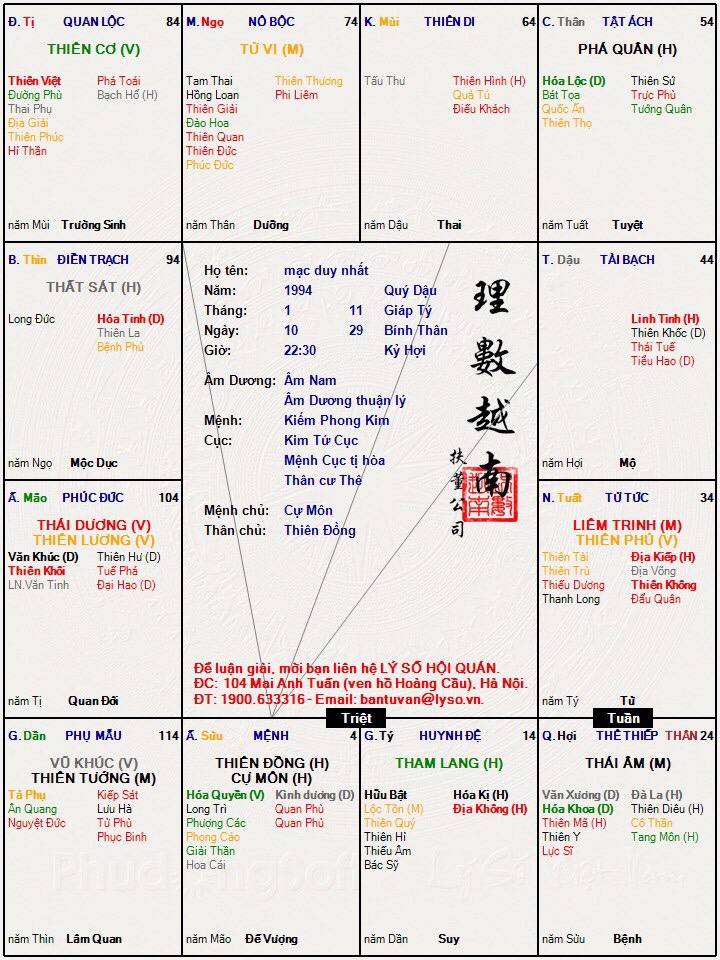 Đ. Tị QUAN LỘC 84
THIÊN CƠ (V)
Thiên Việt Phá Toái
Đường Phù Bạch Hổ (H)
Thai Phụ
Địa Giải
Thiên Phúc
Hỉ Thần
năm Mùi Trường Sinh
M. Ngọ NÔ BỘC 74
TỬ VI (M)
Tam Thai Thiên Thương
Hồng Loan Phi Liêm
Thiên Giải
Đào Hoa
Thiên Quan
Thiên Đức
Phúc Đức
năm Thân Dưỡng
K. Mùi THIÊN DI 64
Tấu Thư Thiên Hình (H)
Quả Tú
Điếu Khách
năm Dậu Thai
C. Thân TẬT ÁCH 54
PHÁ QUÂN (H)
Hóa Lộc (D) Thiên Sứ
Bát Tọa Trực Phù
Quốc Ấn Tướng Quân
Thiên Thọ
năm Tuất Tuyệt
B. Thìn ĐIỀN TRẠCH 94
THẤT SÁT (H)
Long Đức Hỏa Tinh (D)
Thiên La
Bệnh Phù
năm Ngọ Mộc Dục
Họ tên: mạc duy nhất
Năm: 1994 Quý Dậu
Tháng: 1 11 Giáp Tý
Ngày: 10 29 Bính Thân
Giờ: 22:30 Kỷ Hợi
Âm Dương: Âm Nam
Âm Dương thuận lý
Mệnh: Kiếm Phong Kim
Cục: Kim Tứ Cục
Mệnh Cục tị hòa
Thân cư Thê
Mệnh chủ: Cự Môn
Thân chủ: Thiên Đồng
理數越南
扶董公司
Để luận giải, mời bạn liên hệ LÝ SỐ HỘI QUÁN.
ĐC: 104 Mai Anh Tuấn (ven hồ Hoàng Cầu), Hà Nội.
ĐT: 1900.633316 - Email: bantuvan@lyso.vn.
T. Dậu TÀI BẠCH 44
Linh Tinh (H)
Thiên Khốc (D)
Thái Tuế
Tiểu Hao (D)
năm Hợi Mộ
Ấ. Mão PHÚC ĐỨC 104
THÁI DƯƠNG (V)
THIÊN LƯƠNG (V)
Văn Khúc (D) Thiên Hư (D)
Thiên Khôi Tuế Phá
LN.Văn Tinh Đại Hao (D)
năm Tị Quan Đới
N. Tuất TỬ TỨC 34
LIÊM TRINH (M)
THIÊN PHỦ (V)
Thiên Tài Địa Kiếp (H)
Thiên Trù Địa Võng
Thiếu Dương Thiên Không
Thanh Long Đẩu Quân
năm Tý Tử
Triệt
Tuần
G. Dần PHỤ MẪU 114
VŨ KHÚC (V)
THIÊN TƯỚNG (M)
Tả Phụ Kiếp Sát
Ân Quang Lưu Hà
Nguyệt Đức Tử Phù
Phục Binh
năm Thìn Lâm Quan
Ấ. Sửu MỆNH 4
THIÊN ĐỒNG (H)
CỰ MÔN (H)
Hóa Quyền (V) Kình dương (D)
Long Trì Quan Phù
Phượng Các Quan Phủ
Phong Cáo
Giải Thần
Hoa Cái
năm Mão Đế Vượng
G. Tý HUYNH ĐỆ 14
THAM LANG (H)
Hữu Bật Hóa Kị (H)
Lộc Tồn (M) Địa Không (H)
Thiên Quý
Thiên Hỉ
Thiếu Âm
Bác Sỹ
năm Dần Suy
Q. Hợi THÊ THIẾP THÂN 24
THÁI ÂM (M)
Văn Xương (D) Đà La (H)
Hóa Khoa (D) Thiên Diêu (H)
Thiên Mã (H) Cô Thần
Thiên Y Tang Môn (H)
Lực Sĩ
năm Sửu Bệnh